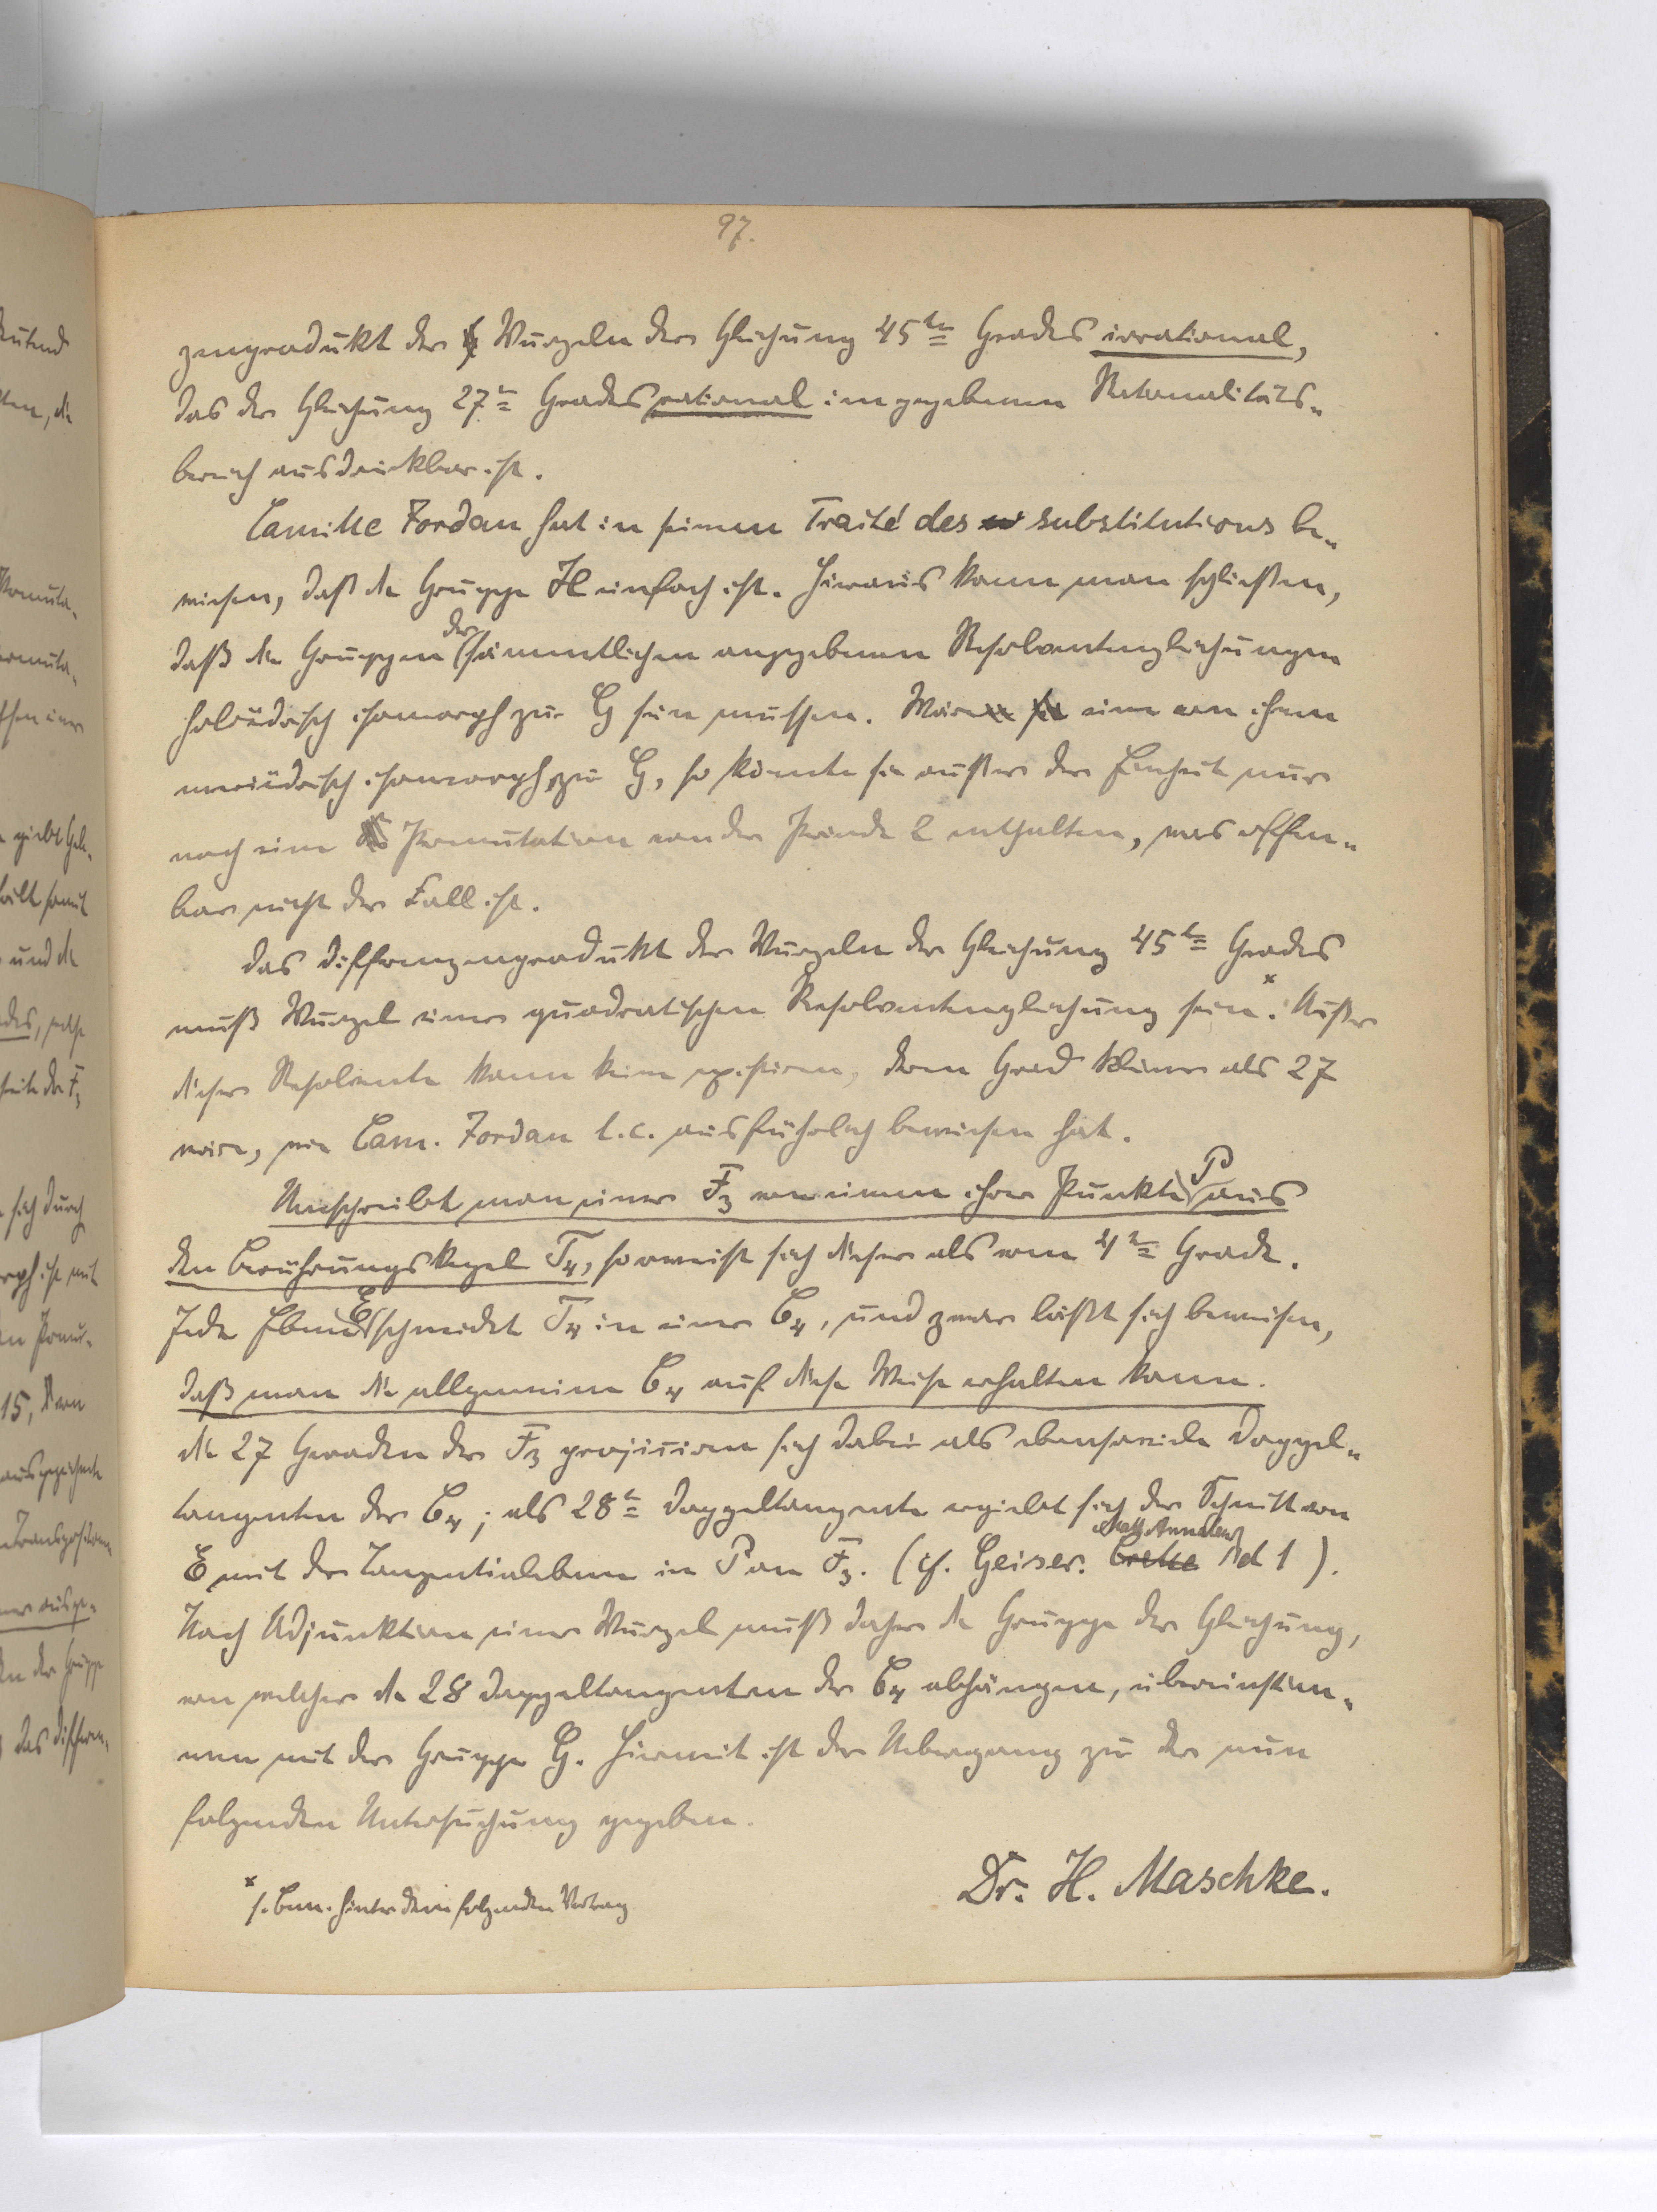 97.
zenprodukt der Wurzeln der Gleichung 45ten Grades irrational,
das der Gleichung 27ten Grades rational im gegebenen Rationalitäts-
bereich ausdrückbar ist.
Camille Jordan hat in seinem Traité des substitutions be-
wiesen, daß die Gruppe H einfach ist. Hieraus kann man schließen,
daß die Gruppen der sämmtlichen angegebenen Resolventengleichungen
holoëdrisch isomorph zu G sein müssen. Wäre eine von ihnen
meriëdrisch isomorph zu G, so könnte sie außer der Einheit nur
noch eine Permutation von der Periode 2 enthalten, was offen-
bar nicht der Fall ist.
Das Differenzenprodukt der Wurzeln der Gleichung 45ten Grades
muß Wurzel einer quadratischen Resolventengleichung sein.x Außer
dieser Resolvente kann keine existieren, deren Grad kleiner als 27
wäre, wie Cam. Jordan l.c. ausführlich bewiesen hat.
Umschreibt man einer F3 von einem ihrer Punkte P aus
den Berührungskegel T4, so erweist sich dieser als vom 4ten Grade.
Jede Ebene E schneidet T4 in einer C4, und zwar läßt sich beweisen,
daß man die allgemeine C4 auf diese Weise erhalten kann.
Die 27 Geraden der F3 projiciren sich dabei als ebensoviele Doppel-
tangenten der C4; als 28te Doppeltangente ergiebt sich der Schnitt von
E mit der Tangentialebene in P an F3. (cf. Geiser. Math. Annalen Bd 1).
Nach Adjunktion einer Wurzel muß daher die Gruppe der Gleichung,
von welcher die 28 Doppeltangenten der C4 abhängen, übereinstim-
men mit der Gruppe G. Hiermit ist der Uebergang zu der nun
folgenden Untersuchung gegeben.
Dr. H. Maschke.
x s. Bem. hinter dem folgenden Vortrag